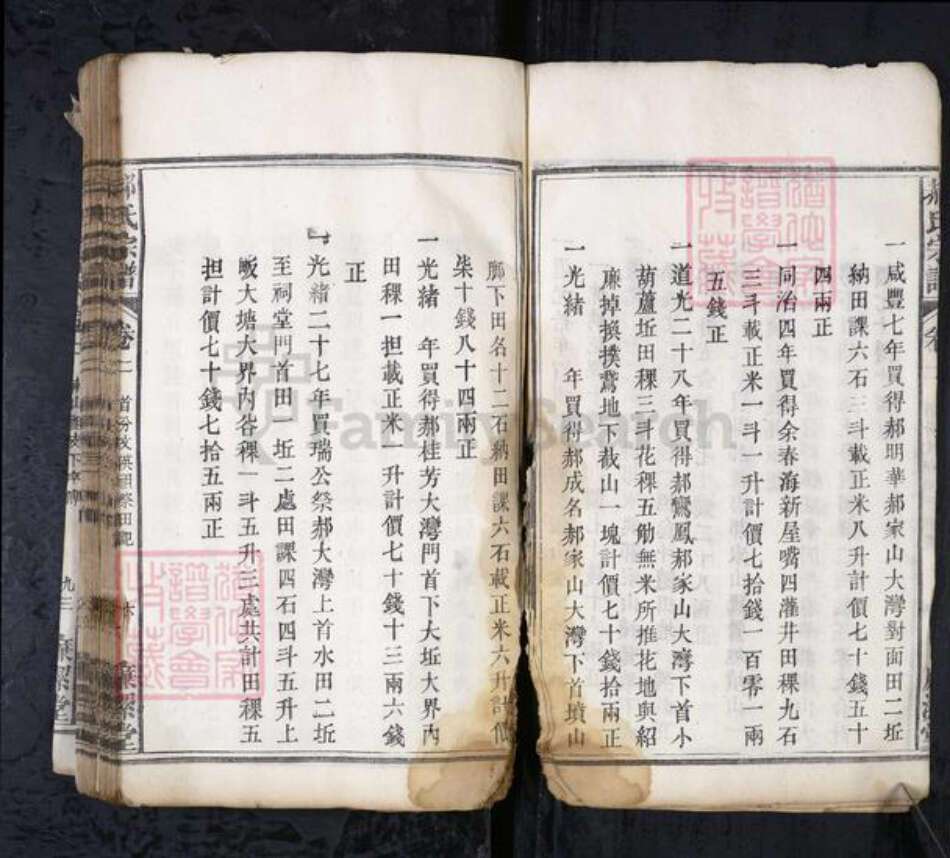 一咸豐七年買得郝明華郝家山大灣對面田二坵
納田課六石三斗載正米八升計價七十錢五十
四兩正
一同治四年買得余春海新屋嘴四灌井田稞九石
三斗載正米一斗一升計價七拾錢一百零一兩
五錢正
一道光二十八年買得郝鸞鳳郝家山大灣下首小
葫蘆坵田稞三斗花稞五觔無米所推花地與紹
廉掉換撲鵞地下截山一塊計價七十錢拾兩正
一光緒 年買得郝成名郝家山大灣下首墳山
廊下田名十二石納田課六石載正米六升計價
柒十錢八十四兩正
一光緒 年買得郝桂芳大灣門首下大坵大界內
田稞一担載正米二升計價七十錢十三兩六錢
正
一光緒二十七年買瑞公祭郝大灣上首水田二坵
至祠堂門首田一坵二處田課四石四斗五升上
畈大塘大界內谷稞一斗五升三處共計田稞五
担計價七十錢七拾五兩正
郝氏宗譜
卷二
九三
FamilySearch